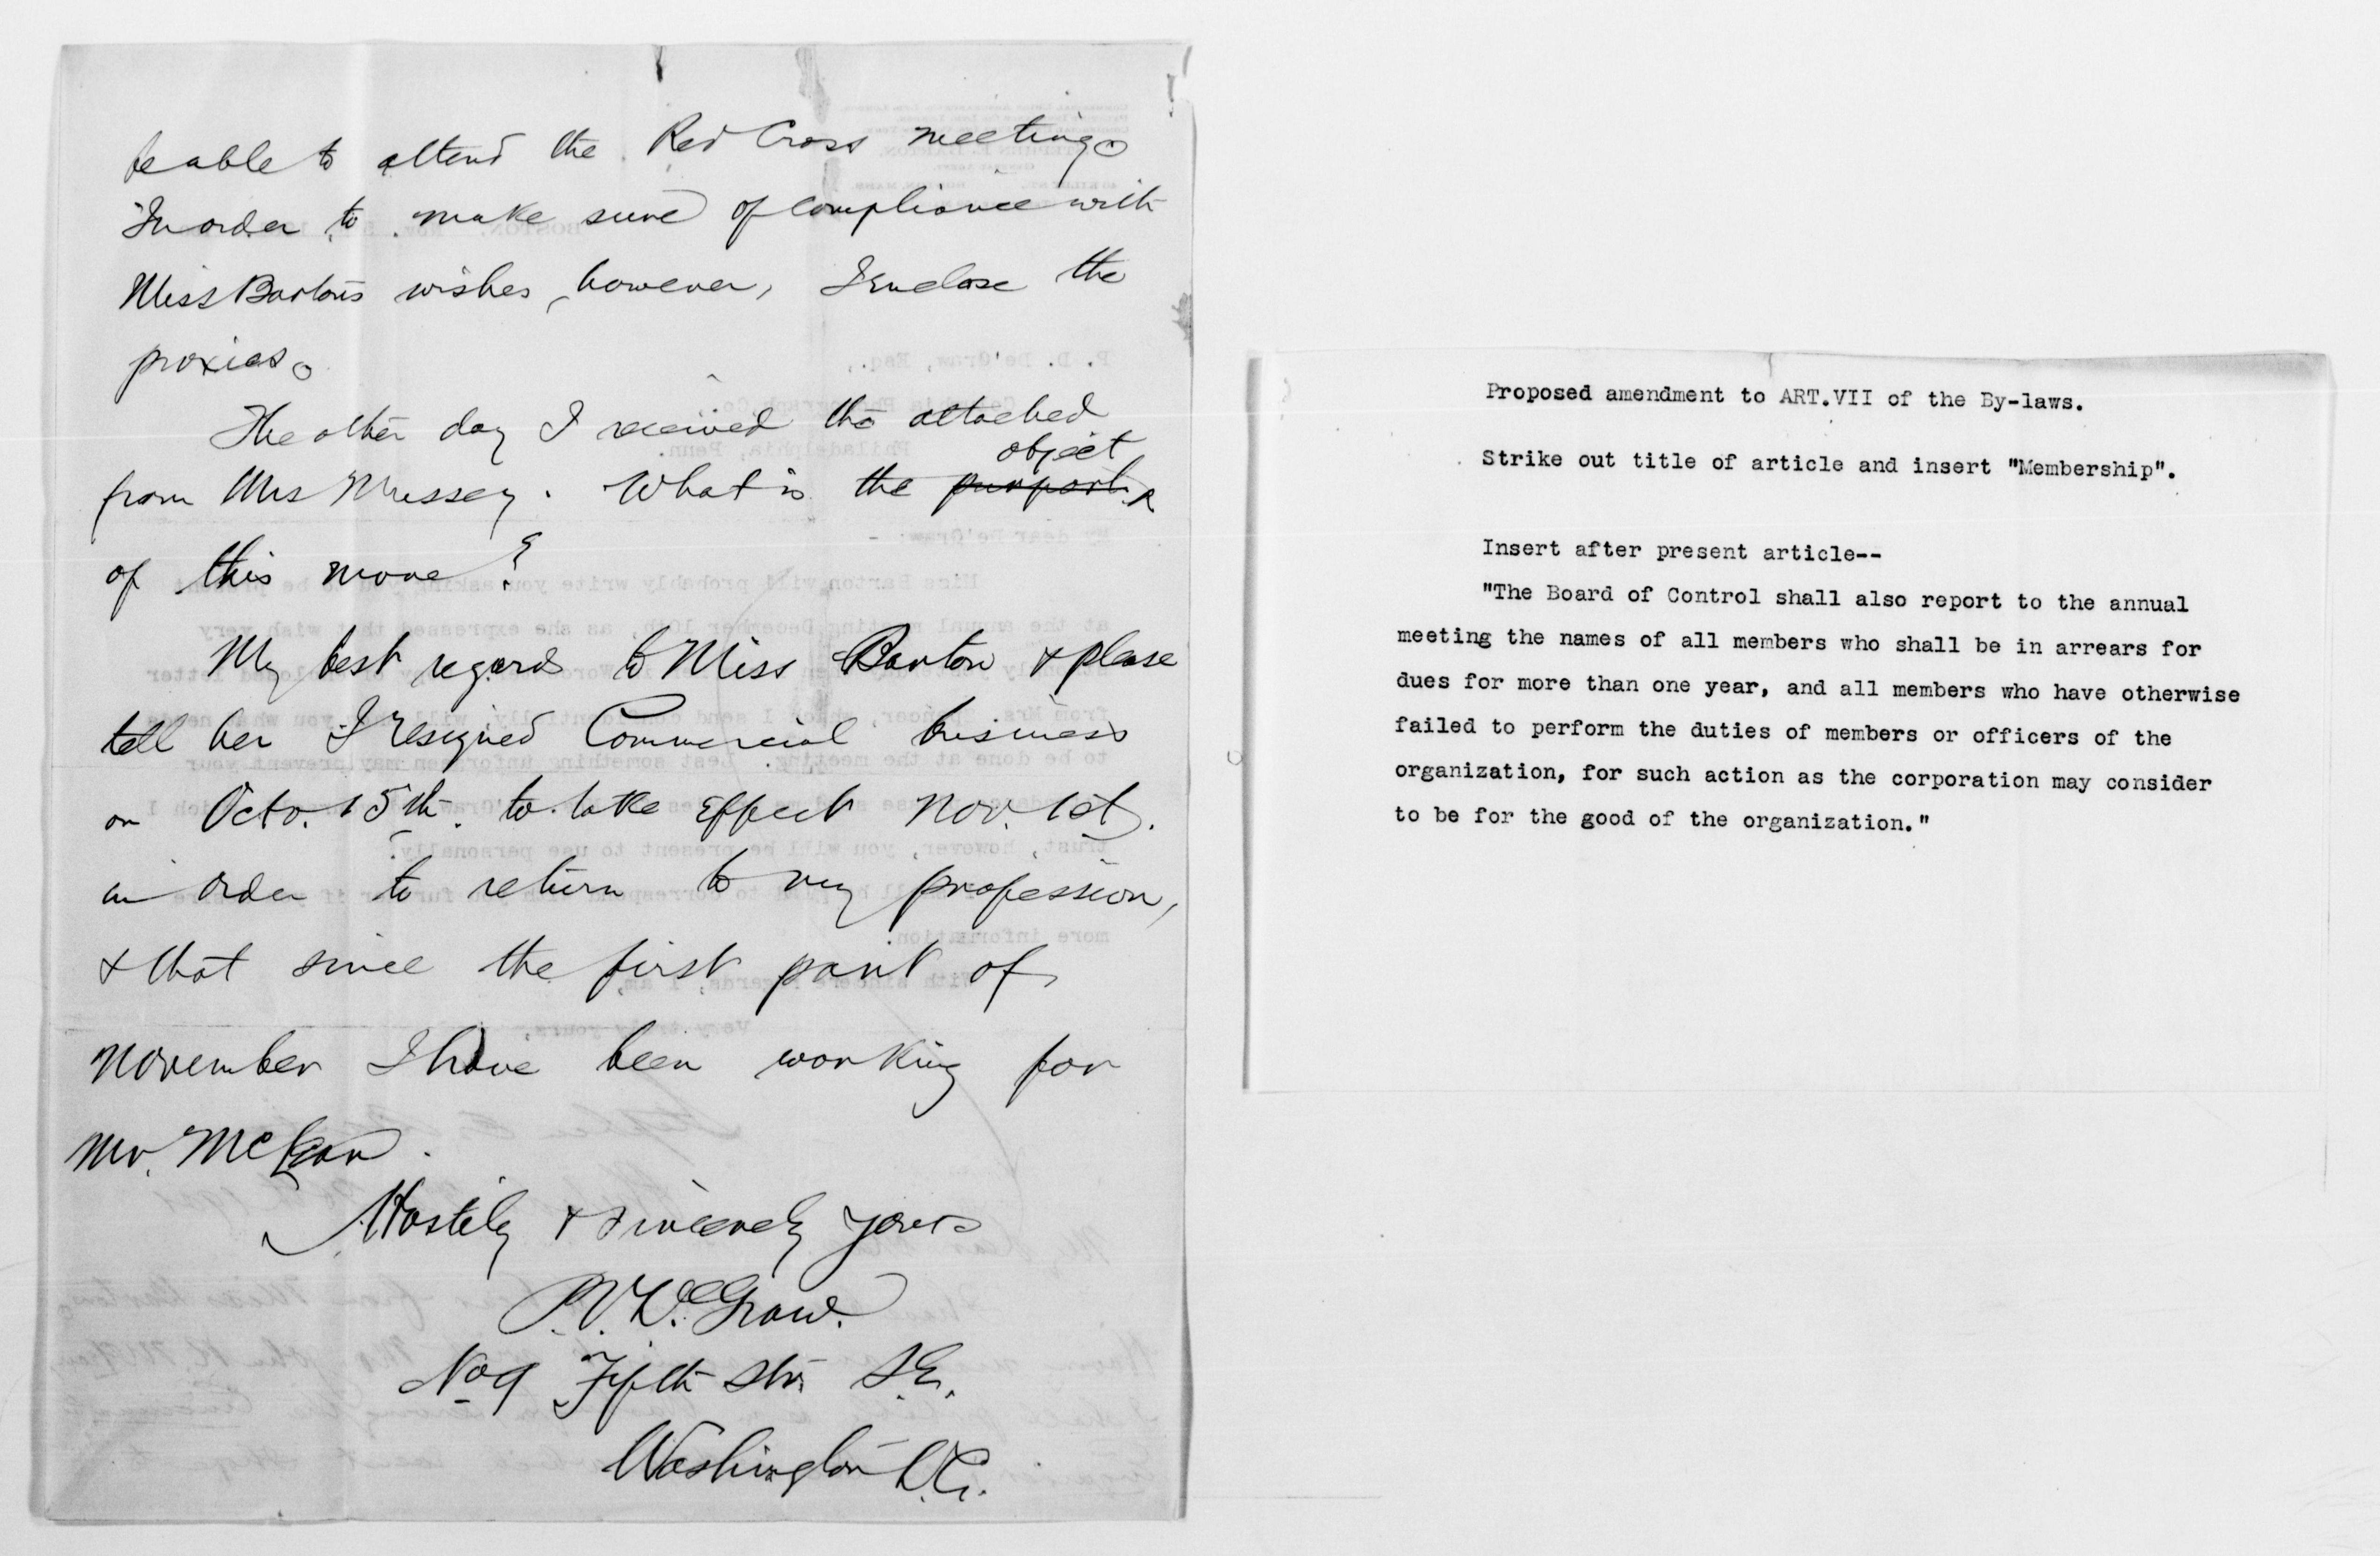 be able to attend the Red Cross meeting.
In order to make sure of compliance with
Miss Barton's wishes, however, I enclose the
proxies.
The other day I received the attached
from Mrs Mussey. What is the purport object
of this move?
My best regards to Miss Barton & please
tell her I resigned Commercial business
on Octo. 15th. to take effect Nov. 1st.
in order to return to my profession,
& that since the first part of
November I have been working for
Mr. McLean.
Hastily & sincerely yours
P.V. DeGraw.
No 9 Fifth Str. S.E.
Washington D.C.
Proposed amendment to ART.VII of the By-laws.
Strike out title of article and insert "Membership".
Insert after present article--
"The Board of Control shall also report to the annual
meeting the names of all members who shall be in arrears for
dues for more than one year, and all members who have otherwise
failed to perform the duties of members or officers of the
organization, for such action as the corporation may consider
to be for the good of the organization."